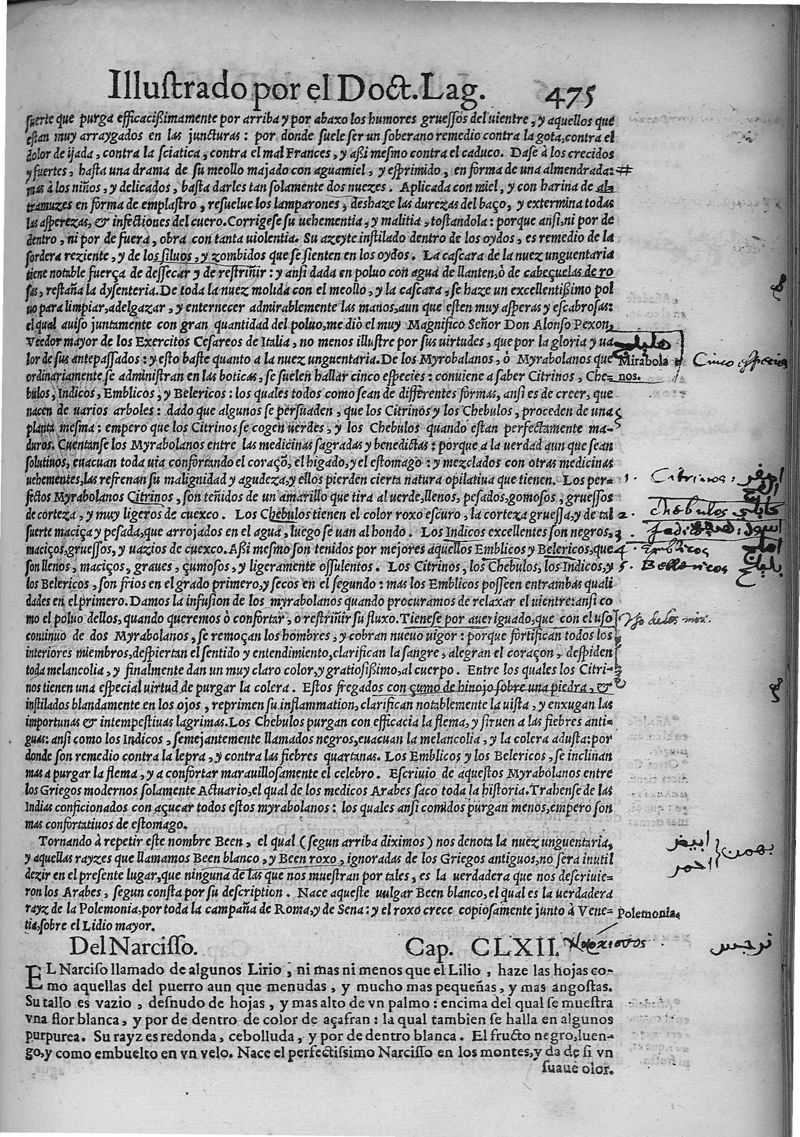 Illustrado por el Doct. Lag. 475
suerte que purga efficacißimamente por arriba y por abaxo los humores gruessos del uientre, y aquellos que
estan muy arraygados en las juncturas: por donde suele ser un soberano remedio contra la gota, contra el
dolor de ijada, contra la sciatica, contra el mal Frances, y aßi mesmo contra el caduco. Dase à los crecidos
y fuertes, hasta una drama de su meollo majado con aguamiel, y esprimido, en forma de una almendrada:
mas à los niños, y delicados, basta darles tan solamente dos nuezes. Aplicada con miel, y con harina de al-
tramuzes en forma de emplastro, resuelue los lamparones, deshaze las durezas del baço, y extermina todas
las asperezas, & infectiones del cuero. Corrigese su uehementia, y malitia, tostandola: porque ansi, ni por de
dentro, ni por de fuera, obra con tanta uiolentia. Su azeyte instilado dentro de los oydos, es remedio de la
sordera reziente, y de los siluos, y zombidos que se sienten en los oydos. La cascara de la nuez unguentaria
tiene notable fuerça de dessecar y de restriñir: y ansi dada en poluo con agua de llanten, ò de cabeçuelas de ro
sas, restaña la dysenteria. De toda la nuez molida con el meollo, y la cascara, se haze un excellentißimo pol
uo para limpiar, adelgazar, y enternecer admirablemente las manos, aun que esten muy asperas y escabrosas:
el qual auiso juntamente con gran quantidad del poluo, me diò el muy Magnifico Señor Don Alonso Pexon,
Veedor mayor de los Exercitos Cesareos de Italia, no menos illustre por sus uirtudes, que por la gloria y ua
lor de sus antepassados: y esto baste quanto a la nuez unguentaria. De los Myrobalanos, ò Myrabolanos que
ordinariamente se administran en las boticas, se suelen hallar cinco especies: conuiene a saber Citrinos, Che-
bulos, Indicos, Emblicos, y Belericos: los quales todos como sean de differentes formas, ansi es de creer, que
nacen de uarios arboles: dado que algunos se persuaden, que los Citrinos y los Chebulos, proceden de una
planta mesma: empero que los Citrinos se cogen uerdes, y los Chebulos quando estan perfectamente ma-
duros. Cuentanse los Myrabolanos entre las medicinas sagradas y benedictas: porque a la verdad aun que sean
solutiuos, euacuan toda uia confortando el coraçõ, el higado, y el estomago: y mezclados con otras medicinas
uehementes, las refrenan su malignidad y agudeza, y ellos pierden cierta natura opilatiua que tienen. Los per-
fectos Myrabolanos Citrinos, son teñidos de un'amarillo que tira al uerde, llenos, pesados, gomosos, gruessos
de corteza, y muy ligeros de cuexco. Los Chebulos tienen el color roxo escuro, la corteza gruessa, y de tal
suerte maciça y pesada, que arrojados en el agua, luego se uan al hondo. Los Indicos excellentes son negros,
maciços, gruessos, y uazios de cuexco. Aßi mesmo son tenidos por mejores aquellos Emblicos y Belericos, que
son llenos, maciços, graues, çumosos, y ligeramente ossulentos. Los Citrinos, los Chebulos, los Indicos, y
los Belericos, son frios en el grado primero, y secos en el segundo: mas los Emblicos posseen entrambas quali
dades en el primero. Damos la infusion de los myrabolanos quando procuramos de relaxar el uientre: ansi co
mo el poluo dellos, quando queremos ò confortar, o restriñir su fluxo. Tienese por aueriguado, que con el uso
continuo de dos Myrabolanos, se remoçan los hombres, y cobran nueuo uigor: porque fortifican todos los
interiores miembros, despiertan el sentido y entendimiento, clarifican la sangre, alegran el coraçon, despiden
toda melancolia, y finalmente dan un muy claro color, y gratiosißimo, al cuerpo. Entre los quales los Citri-
nos tienen una especial uirtud de purgar la colera. Estos fregados con çumo de hinojo sobre una piedra, &
instilados blandamente en los ojos, reprimen su inflammation, clarifican notablemente la uista, y enxugan las
importunas & intempestiuas lagrimas. Los Chebulos purgan con efficacia la flema, y siruen a las fiebres anti-
guas: ansi como los Indicos, semejantemente llamados negros, euacuan la melancolia, y la colera adusta: por
donde son remedio contra la lepra, y contra las fiebres quartanas. Los Emblicos y los Belericos, se inclinan
mas a purgar la flema, y a confortar marauillosamente el celebro. Escriuio de aquestos Myrabolanos entre
los Griegos modernos solamente Actuario, el qual de los medicos Arabes saco toda la historia. Trahense de las
Indias conficionados con açucar todos estos myrabolanos: los quales ansi comidos purgan menos, empero son
mas confortatiuos de estomago.
Tornando à repetir este nombre Been, el qual (segun arriba diximos) nos denota la nuez unguentaria,
y aquellas rayzes que llamamos Been blanco, y Been roxo, ignoradas de los Griegos antiguos, no sera inutil
dezir en el presente lugar, que ninguna de las que nos muestran por tales, es la verdadera que nos descriuie-
ron los Arabes, segun consta por su description. Nace aqueste uulgar Been blanco, el qual es la uerdadera
rayz de la Polemonia, por toda la campaña de Roma, y de Sena: y el roxo crece copiosamente junto à Vene-
tia, sobre el Lidio mayor.
هليلج
Mirabola
nos.
Cinco especies
1. Citrinos: اصفر
2. chebulos كابلي
3. Indicos: اسود
4. Emblicos املج
5. Bellericos بليلج
Uso de los mir.
بهمن ابيض
احمر
Polemonia.
Del Narcisso. Cap. CLXII. Ναρκισσος نرجس
EL Narciso llamado de algunos Lirio, ni mas ni menos que el Lilio, haze las hojas co-
mo aquellas del puerro aun que menudas, y mucho mas pequeñas, y mas angostas.
Su tallo es vazio, desnudo de hojas, y mas alto de vn palmo: encima del qual se muestra
vna flor blanca, y por de dentro de color de açafran: la qual tambien se halla en algunos
purpurea. Su rayz es redonda, cebolluda, y por de dentro blanca. El fructo negro, luen-
go, y como embuelto en vn velo. Nace el perfectissimo Narcisso en los montes, y da de si vn
suaue olor.